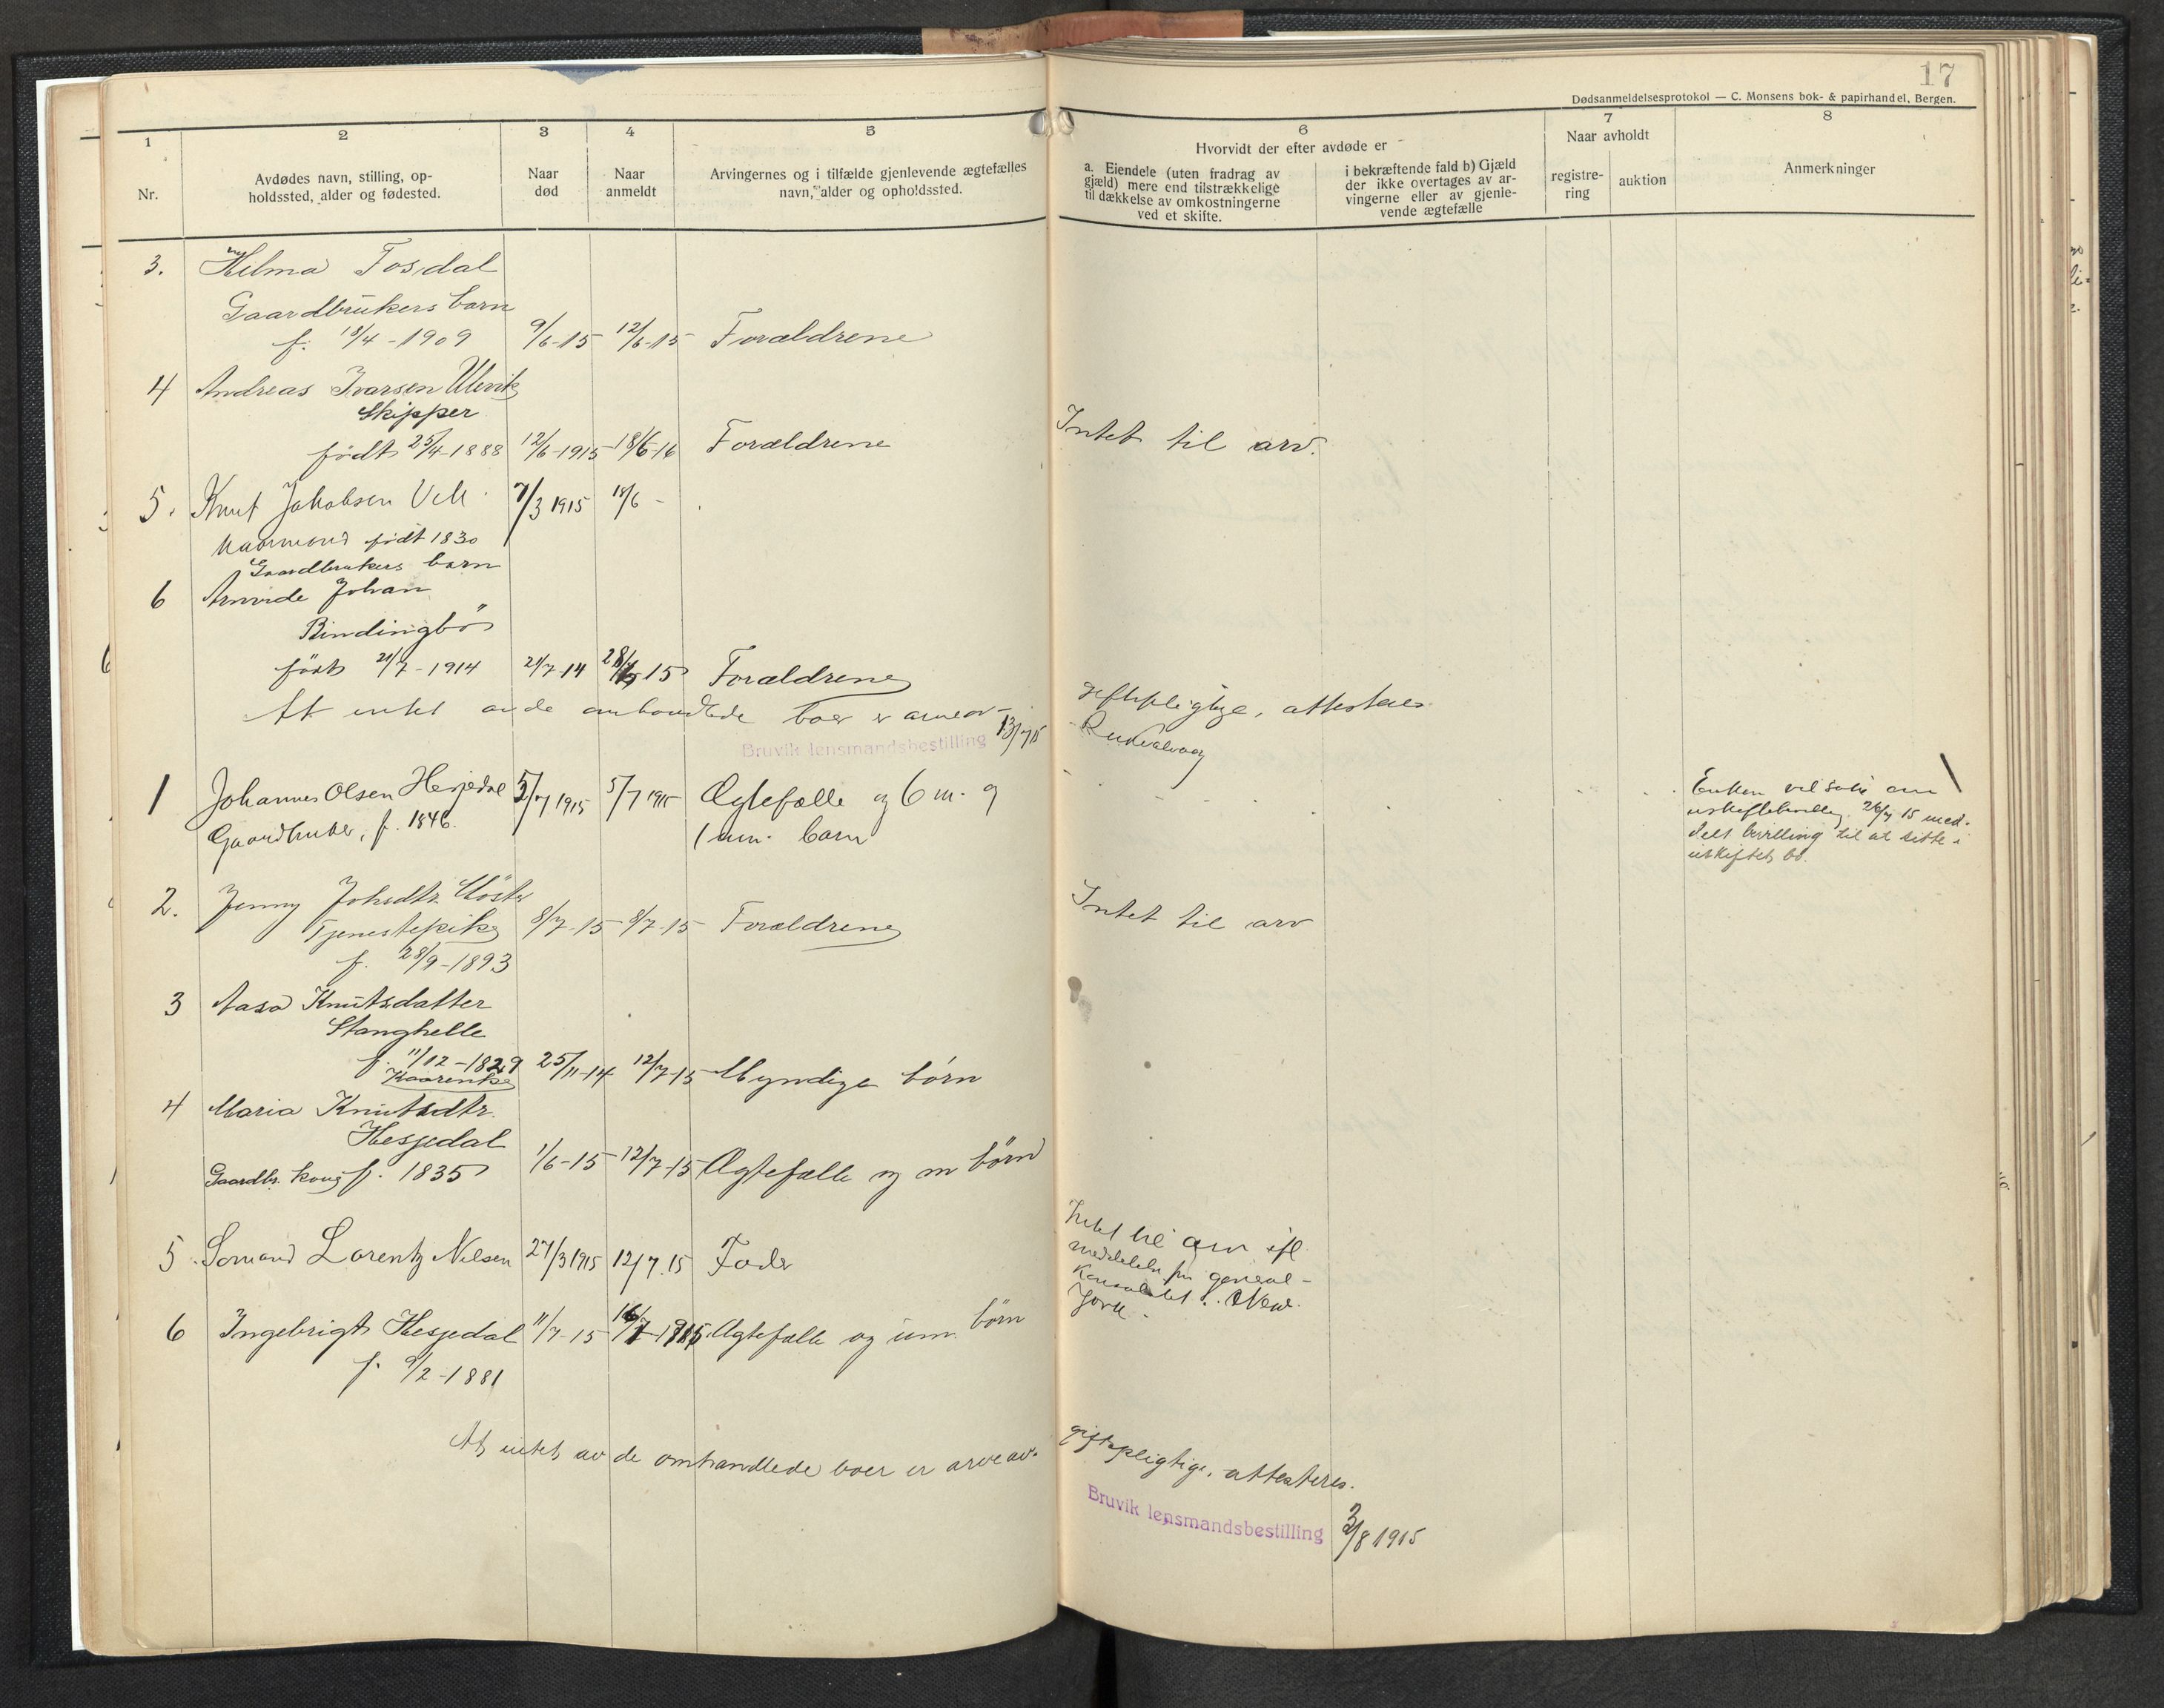 17
Dødsanmeldelsesprotokol — C. Monsens bok- & papirhandel, Bergen.
1
Nr.
2
Avdødes navn, stilling, op-
holdssted, alder og fødested.
3
Naar
død
4
Naar
anmeldt
5
Arvingernes og i tilfælde gjenlevende ægtefælles
navn, alder og opholdssted.
6
Hvorvidt der efter avdøde er
a. Eiendele (uten fradrag av
gjæld) mere end tilstrækkelige
til dækkelse av omkostningerne
ved et skifte.
i bekræftende fald b) Gjæld
der ikke overtages av ar-
vingerne eller av gjenle-
vende ægtefælle
7
Naar avholdt
registre-
ring
auktion
8
Anmerkninger
3. Hilma Fosdal
Gaardbrukers barn
f. 18/4-1909 9/6-15 12/6-15 Forældrene
4 Andreas Ivarsen Ulvik
Skipper
født 25/4-1888 12/6-1915 18/6-16 Forældrene Intet til arv.
5. Knut Jakobsen Vik 7/3 1915 18/6 -
Kaarmand født 1830
Gaardbrukers barn
6 Arnvide Johan
Bindingbö
født 21/7-1914 21/7-14 15 Forældrene
At intet av de omhandlede boer er arveav-
giftspligtige, attesteres
Bruvik lensmandsbestilling 13/7 15
1 Johannes Olsen Hesjedal 5/7 1915 5/7 1915 Ægtefælle og 6 m. og
Gaardbruker, f. 1846. 1 um. barn
Enken vil søke om
uskiftebevilling. 26/7 15 med-
delt bevilling til at sitte i
uskiftet bo.
2. Jenny Johsdtr.
Tjenestepike 8/7-15 8/7-15 Forældrene Intet til arv
f. 28/9-1893
3 Aasa Knutsdatter
Stanghelle
f. 11/12-1829 25/11-14 12/7-15 Myndige børn
Kaarenke
4 Maria Knutsdtr.
Hesjedal
Gaardbr. kone f. 1835 1/6-15 12/7-15 Ægtefælle og m børn
5. Sömand Lorentz Nilsen 27/3 1915 12/7.15 Fader
Intet til arv ifl.
meddelelse fra general-
konsulatet i New.
York -
6 Ingebrigt Hesjedal 11/7-15 16/7-1915 Ægtefælle og um børn
f. 9/2-1881
At intet av de omhandlede boer er arveav-
giftspligtige, attesteres.
Bruvik lensmandsbestilling 3/8 1915